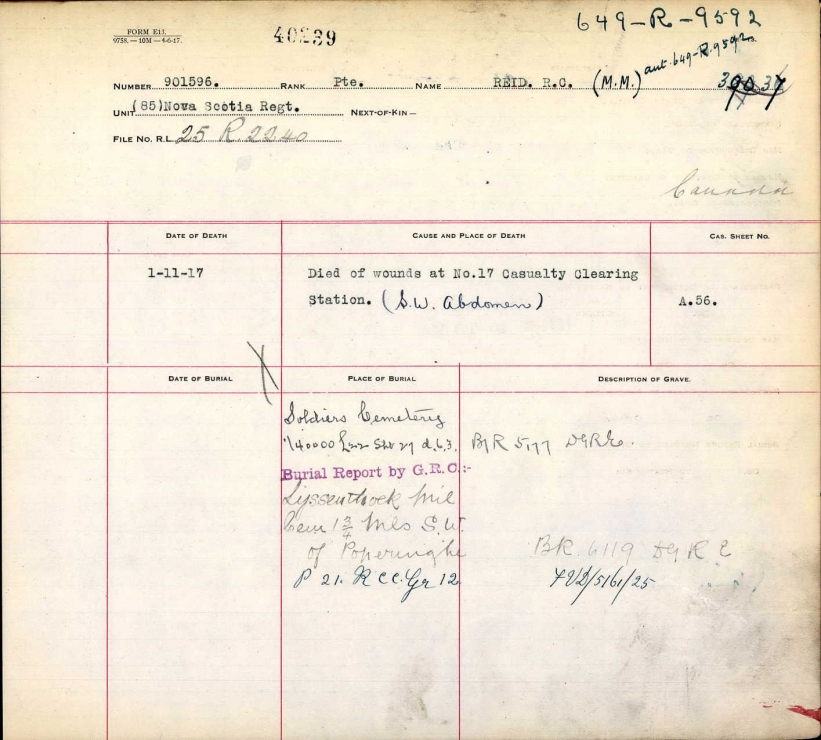 649-R-9592
FORM E13.
9758.—10M—4-6-17.
40239
aut. 649-R-9592
NUMBER 901596. RANK Pte. NAME REID. R.C. (M.M.)
UNIT (85)Nova Scotia Regt. NEXT-OF-KIN—
FILE NO. R.L. 25 R 2240
Canada
DATE OF DEATH CAUSE AND PLACE OF DEATH CAS. SHEET NO.
1-11-17 Died of wounds at No.17 Casualty Clearing
Station. (S.W. Abdomen) A.56.
DATE OF BURIAL PLACE OF BURIAL DESCRIPTION OF GRAVE.
Soldiers Cemetery
1/40000 Sht 27 d.6.3. B/R 5177 DGRE.
Burial Report by G.R.C.:-
Lyssenthoek Mil
Cem 1 3/4 Mls S.W.
of Poperinghe BR 6119 DGRE
P 21. R CC. Gr 12